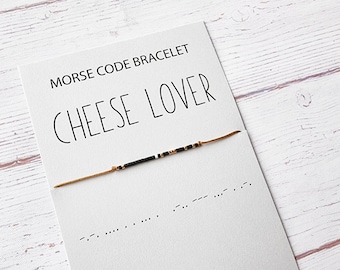 MORSE CODE BRACELET
CHEESE LOVER